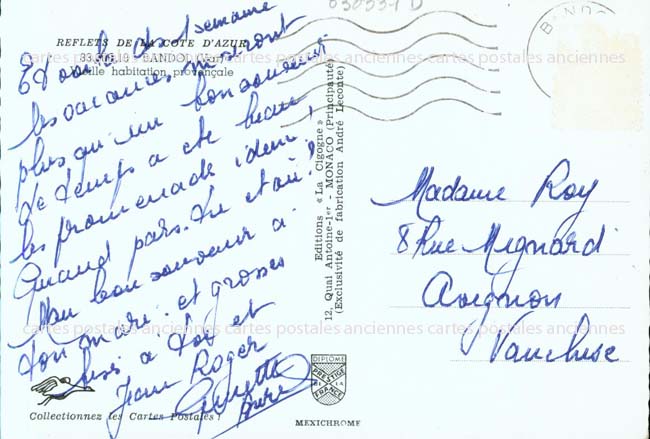 030534 D
BANDO
REFLETS DE LA COTE D'AZUR
83.019.19 - BANDOL (Var)
Vieille habitation provençale
semaine
les vacances ne sont
plus qu'un bon souvenir
le temps a été beau
les promenade idem,
Quand pars-tu et où?
Mon bon souvenir a
ton mari et grosses
bises a toi et
Jean Roger
Editions « La Cigogne »
12, Quai Antoine-1er - MONACO (Principauté)
(Exclusivité de fabrication André Leconte)
Madame Roy
8 Rue Mignard
Avignon
Vaucluse
cartes postales anciennes cartes postales anciennes cartes postales anciennes
cartes postales anciennes cartes postales anciennes cartes postales anciennes
DIPLOME
PRESTIGE
DE LA
FRANCE
Collectionnez les Cartes Postales !
MEXICHROME